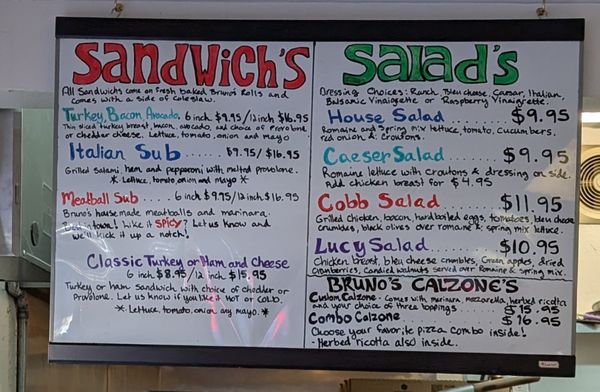 SANDWiCH'S
All Sandwichs come on fresh baked Bruno's Rolls and
comes with a side of coleslaw.
Turkey, Bacon, Avocado. 6 inch $9.95/12 inch $16.95
Thin sliced turkey breast, bacon, avocado, and choice of Provolone
or chedder cheese. Lettuce, tomato, onion and mayo
Italian Sub ...... $9.95/$16.95
Grilled salami, ham and pepperoni with melted provolone.
* Lettuce, tomato, onion and mayo *
Meatball Sub .... 6 inch $9.95/12 inch $16.95
Bruno's house made meatballs and marinara.
in town! Like it SPICY? Let us know and
we'll kick it up a notch!
Classic Turkey or Ham and Cheese
6 inch $8.95/ inch $15.95
Turkey or Ham sandwich with choice of chedder or
Provolone. Let us know if you like it HOT or COLD.
* Lettuce, tomato, onion any mayo. *
Salad's
Dressing Choices: Ranch, Bleu cheese, Caesar, Italian,
Balsamic Vinaigrette or Raspberry Vinaigrette.
House Salad ...... $9.95
Romaine and Spring mix lettuce, tomato, cucumbers,
red onion & croutons.
Caeser Salad ...... $9.95
Romaine lettuce with croutons & dressing on side.
Add chicken breast for $4.95
Cobb Salad ...... $11.95
Grilled chicken, bacon, hardboiled eggs, tomatoes, bleu cheese
crumbles, black olives over romaine & spring mix lettuce.
Lucy Salad ...... $10.95
Chicken breast, bleu cheese crumbles, Green apples, dried
Cranberries, Candied walnuts served over Romaine & Spring mix.
BRUNO'S CALZONE'S
Custom Calzone - Comes with marinara, mozzarella, herbed ricotta
and your choice of three toppings ...... $15.95
Combo Calzone ...... $16.95
Choose your favorite pizza combo inside!
- Herbed ricotta also inside.